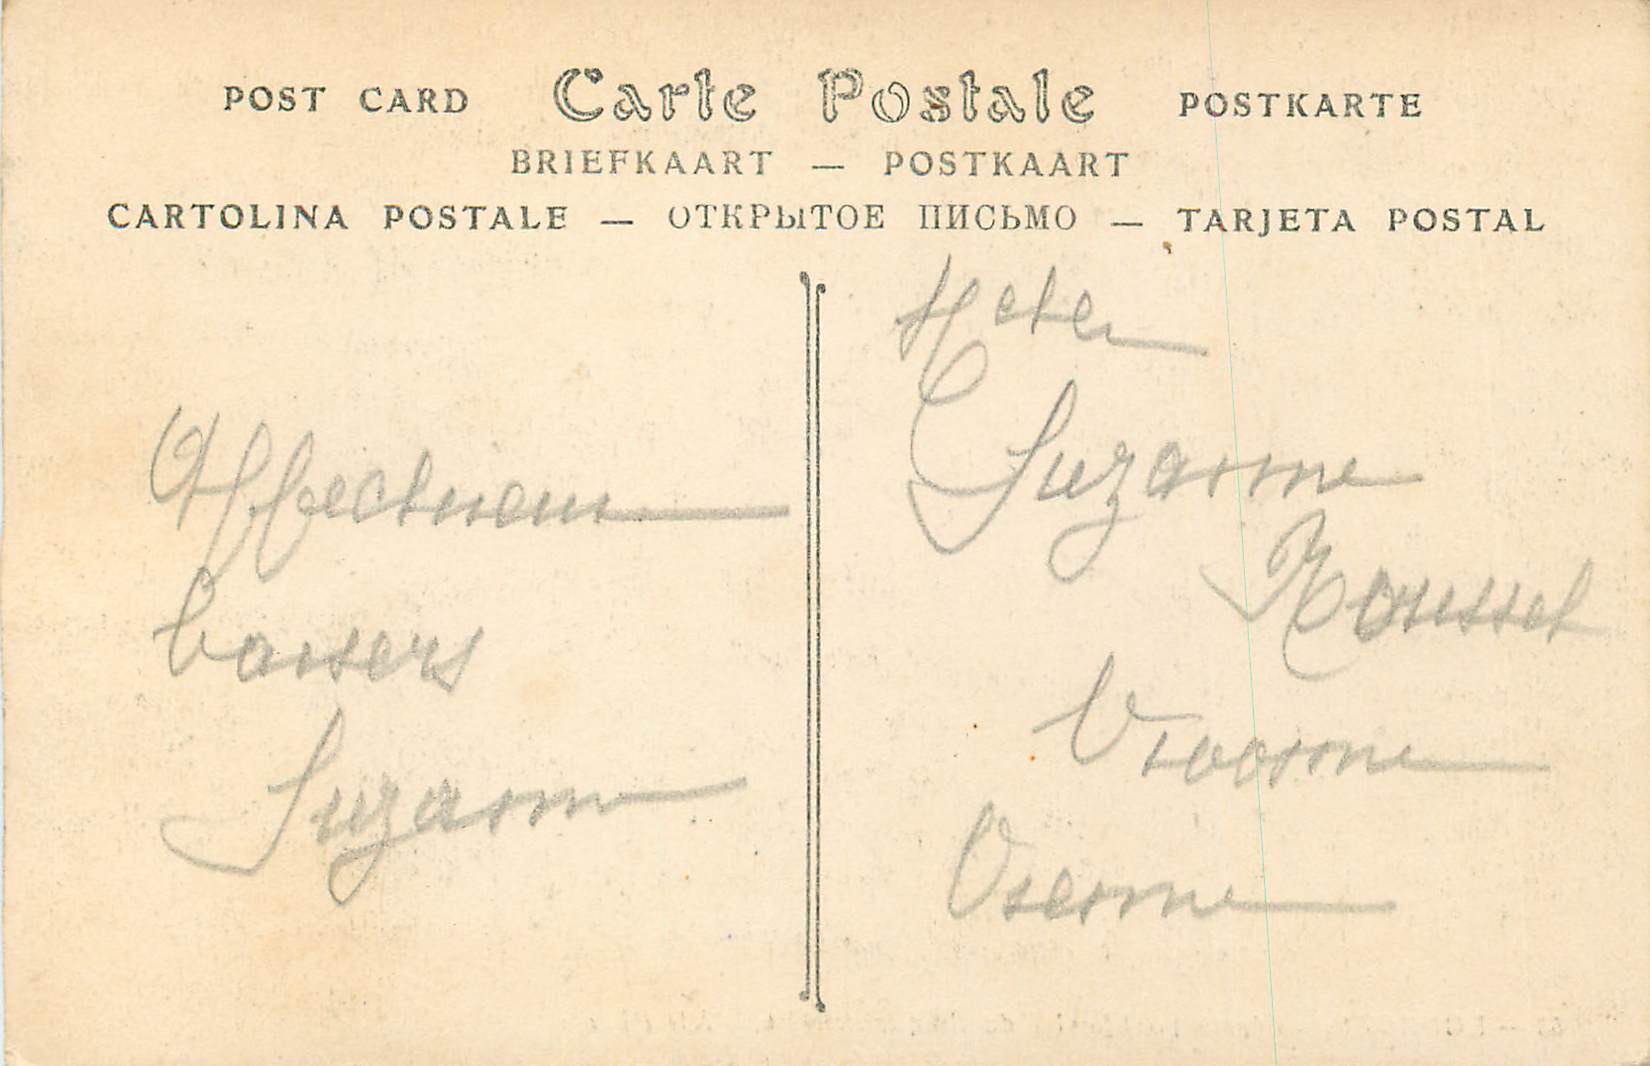 POST CARD Carte Postale POSTKARTE
BRIEFKAART — POSTKAART
CARTOLINA POSTALE — ОТКРЫТОЕ ПИСЬМО — TARJETA POSTAL
Affectueux
baisers
Suzanne
Suzanne
Roussel
Vivonne
Vienne